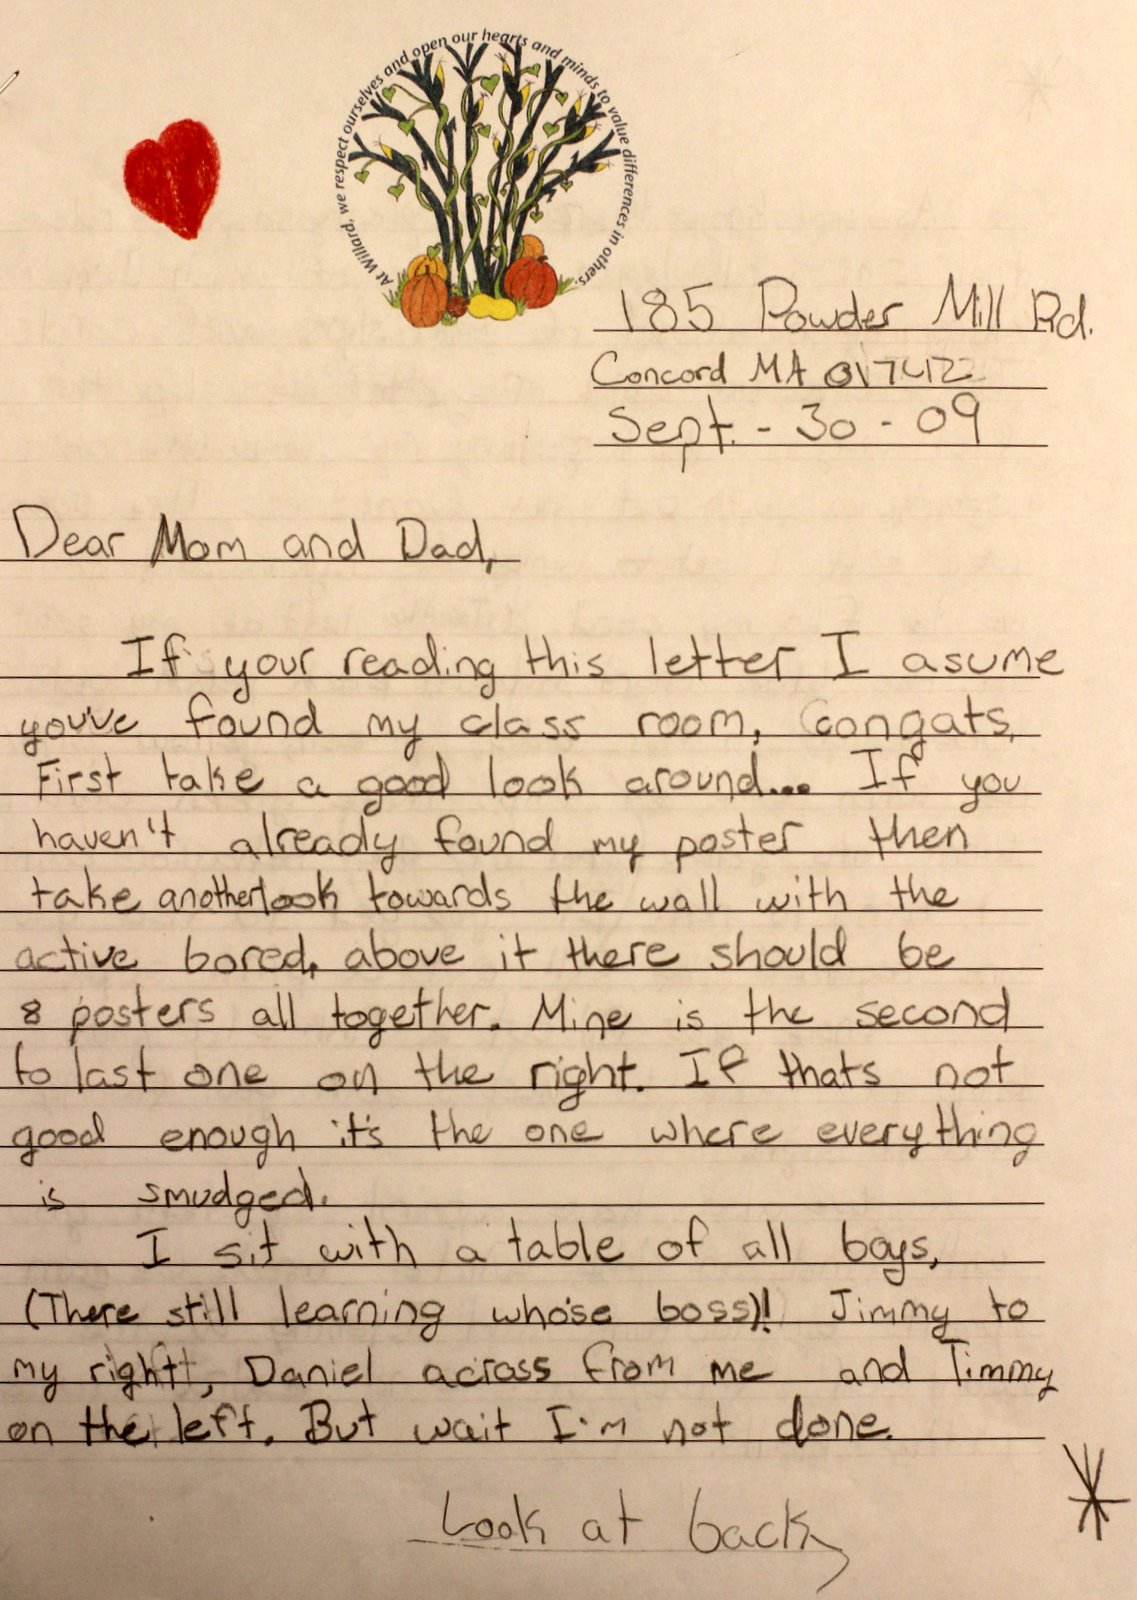 At Willard, we respect ourselves and open our hearts and minds to value differences in others.
185 Powder Mill Rd.
Concord MA 01742
Sept. - 30 - 09
Dear Mom and Dad,
If your reading this letter I asume
youve found my class room, Congats,
First take a good look around... If you
haven't already found my poster then
take another look towards the wall with the
active bored, above it there should be
8 posters all together. Mine is the second
to last one on the right. If thats not
good enough it's the one where everything
is smudged.
I sit with a table of all boys,
(There still learning who'se boss)! Jimmy to
my right, Daniel across from me and Timmy
on the left. But wait I'm not done.
Look at back